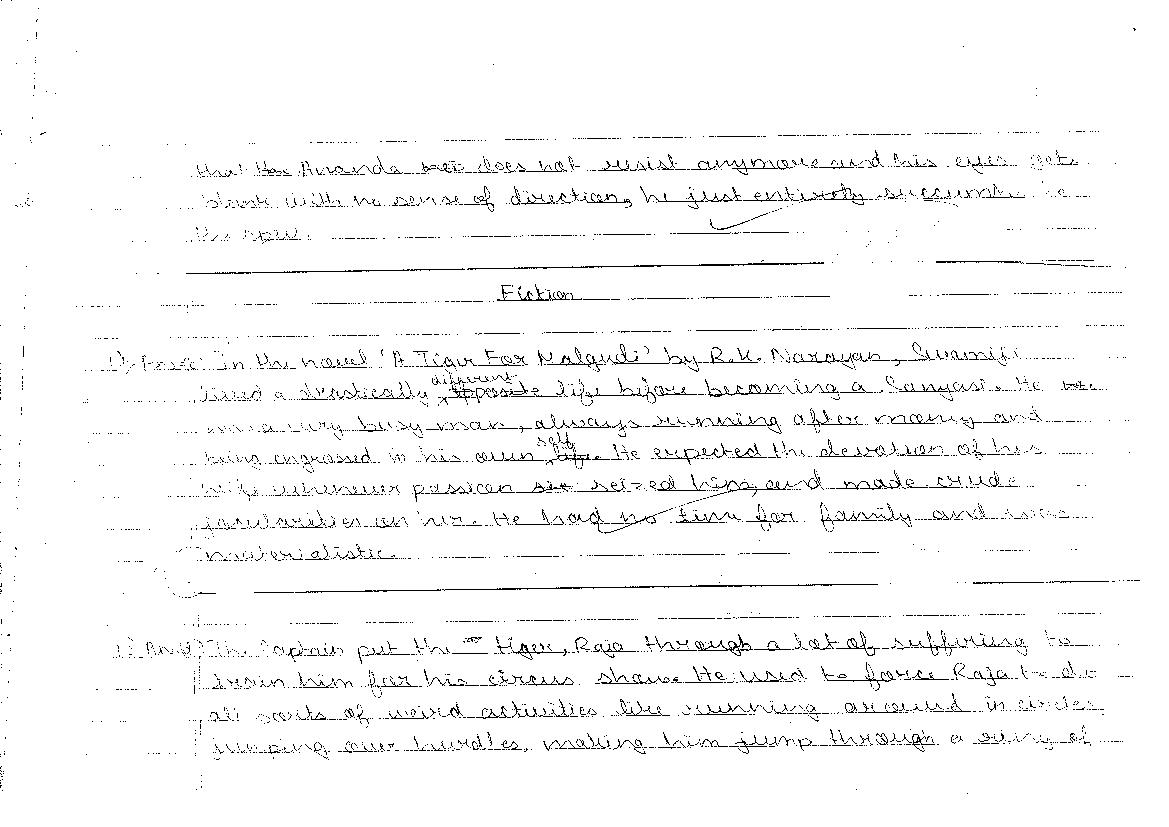 that Ananda does not resist anymore and his eyes get
blank with no sense of direction, he just entirely succumbs to
the spell.
Fiction
In the novel 'A Tiger For Malgudi' by R.K. Narayan, Swamiji
lived a drastically different life before becoming a Sanyasi. He
was a very busy man, always running after money and
being engrossed in his own self. He expected the devotion of his
wife whenever passion seized him, and made crude
jocularities on her. He had no time for family and was
materialistic.
The Captain put the tiger, Raja through a lot of suffering to
train him for his circus show. He used to force Raja to do
all sorts of weird activities like running around in circles,
jumping over hurdles, making him jump through a ring of